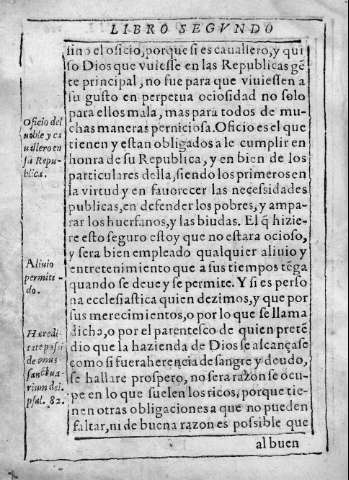 LIBRO SEGVNDO
sino el oficio, porque si es cauallero, y qui
so Dios que vuiesse en las Republicas gẽ
te principal, no fue para que viuiessen a
su gusto en perpetua ociosidad no solo
para ellos mala, mas para todos de mu-
chas maneras perniciosa. Oficio es el que
tienen y estan obligados a le cumplir en
honra de su Republica, y en bien de los
particulares della, siendo los primeros en
la virtud y en fauorecer las necessidades
publicas, en defender los pobres, y ampa-
rar los huerfanos, y las biudas. El q̃ hizie-
re esto seguro estoy que no estara ocioso,
y sera bien empleado qualquier aliuio y
entretenimiento que a sus tiempos tẽga
quando se deue y se permite. Y si es perso
na ecclesiastica quien dezimos, y que por
sus merecimientos, o por lo que se llama
dicha, o por el parentesco de quien pretẽ
dio que la hazienda de Dios se alcançase
como si fuera herencia de sangre y deudo,
se hallare prospero, no sera razon se ocu-
pe en lo que suelen los ricos, porque tie-
nen otras obligaciones a que no pueden
faltar, ni de buena razon es possible que
al buen
Oficio del
noble y ca
uallero en
sa Repu-
blica.
Aliuio
permiti-
do.
Heredi
tate possi
de anus
sanctua
rium dei.
psal. 82.